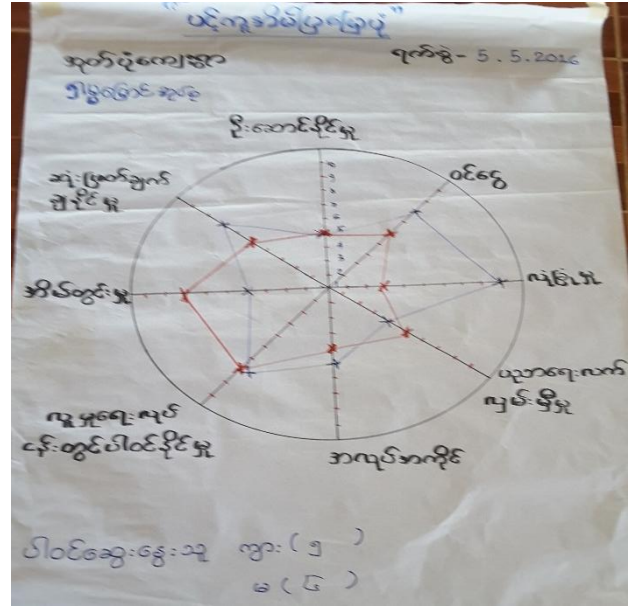 "ပင့်ကူအိမ်ပြမြေပုံ"
အုတ်ပုံကျေးရွာ
ရက်စွဲ- 5.5.2016
ဦးဆောင်နိုင်မှု
ဝင်ငွေ
လုံခြုံမှု
ပညာရေးလက်
လှမ်းမှီမှု
အလုပ်အကိုင်
လူမှုရေးလုပ်
ငန်းတွင်ပါဝင်နိုင်မှု
အိမ်တွင်းမှု
ဆုံးဖြတ်ချက်
ချနိုင်မှု
ပါဝင်ဆွေးနွေးသူ ကျား ( ၅ )
မ ( ၆ )